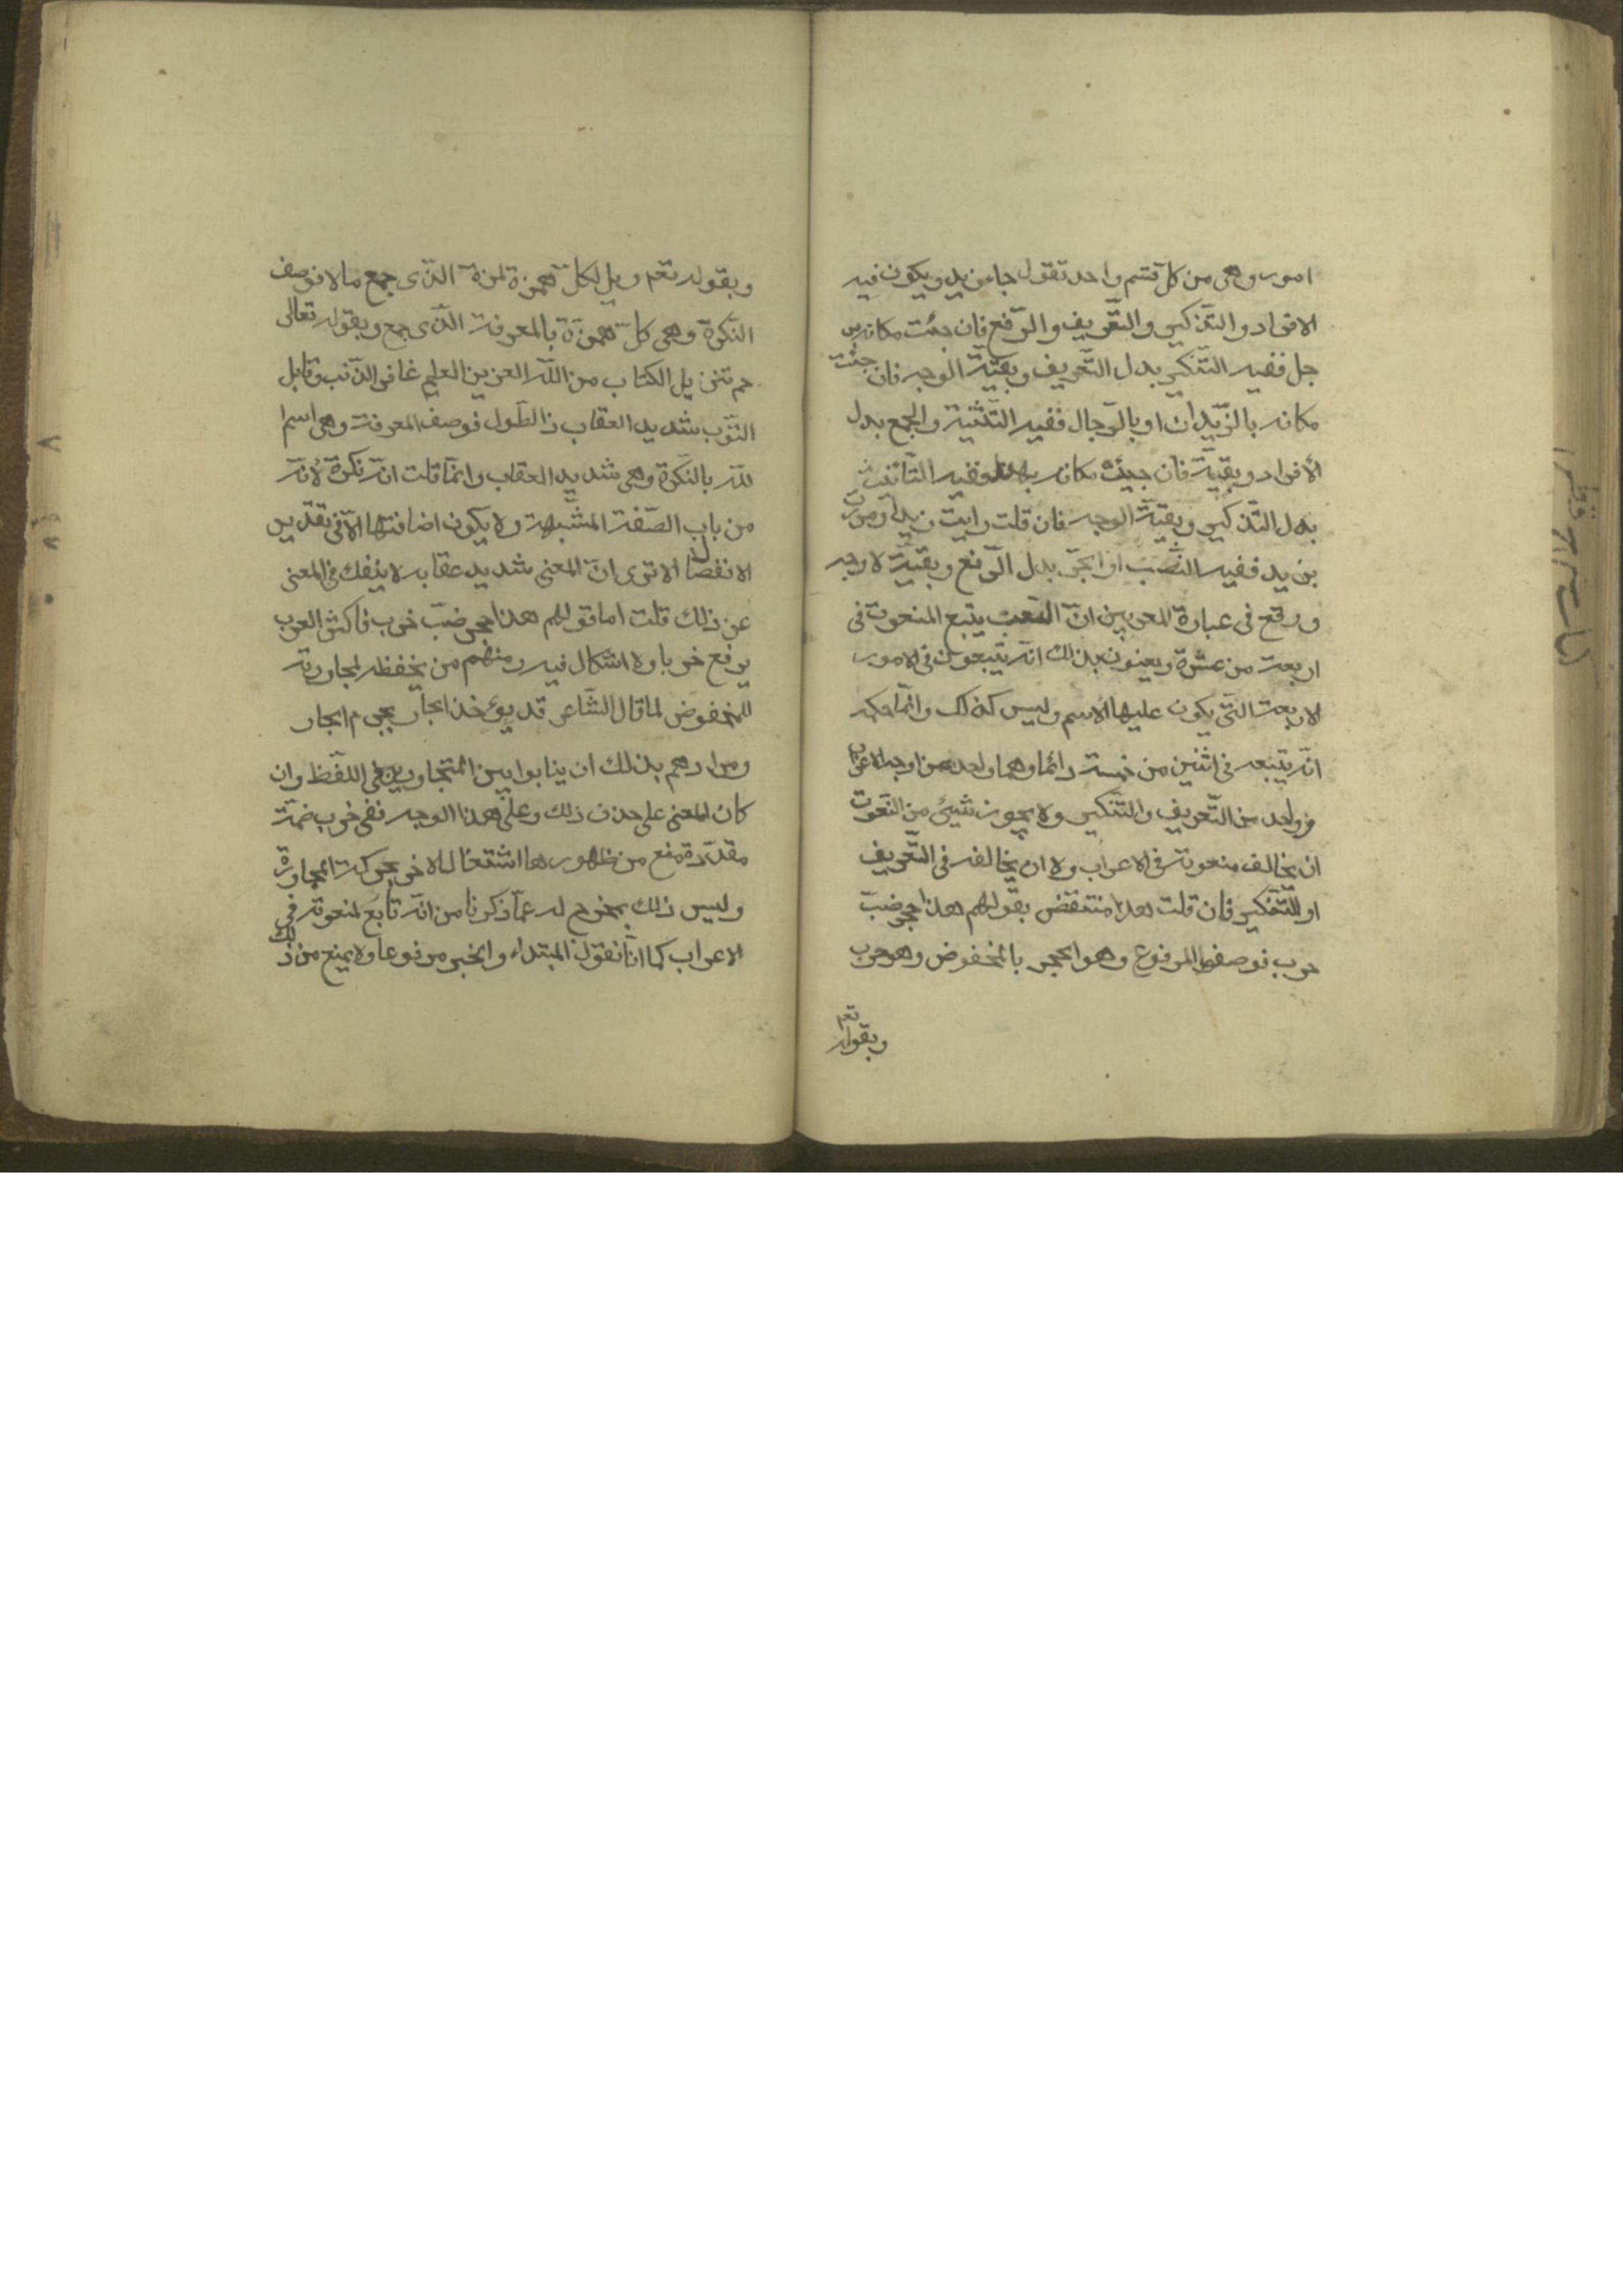 امور وهى من كل قسم واحد تقول جاء زيد ويكون فيه
الافراد والتذكير والتعريف والرفع فان جئت مكانه بر
جل ففيه التنكير بدل التعريف وبقية الوجه فان جئت
مكانه بالزيدان او بالرجال ففيه التثنية والجمع بدل
الأفراد وبقية فان جيئت مكانه بهند ففيه التانيث
بدل التذكير وبقية الوجه فان قلت رايت زيدا ومررت
بزيد ففيه النصب او الجر بدل الرفع وبقية لاوجه
ووقع فى عبارة المعربين ان النعت يتبع المنعوت فى
اربعة من عشرة ويعنون بذلك انه يتبعون فى الامور
الاربعة التى يكون عليها الاسم وليس كذلك وانما حكمه
انه يتبعه فى اثنين من خمسة دائما وهما واحد من اوجه الاعراب
وواحد من التعريف والتنكير ولا يجوز شيئ من النعوت
ان يخالف منعوته فى الاعراب ولا ان يخالفه فى التعريف
او للتنكير فان قلت هذا منتقض بقولهم هذا حجر ضب
حرب فوصفوا المرفوع وهو الحجر بالمخفوض وهو حرب
وبقوله تعم
وبقوله تعم ويل لكل همزة لمزة الذى جمع مالا فوصف
النكرة وهى كل همزة بالمعرفة الذى جمع وبقوله تعالى
حم تنزيل الكتاب من الله العزيز العليم غافر الذنب وقابل
التوب شديد العقاب ذالطول فوصف المعرفة وهى اسم ا
لله بالنكرة وهى شديد العقاب وانما قلت انه نكرة لأنه
من باب الصفة المشبهة ولا يكون اضافتها الا فى تقدير
الانفصال الا ترى ان المعنى شديد عقابه لا ينفك فى المعنى
عن ذلك قلت اما قولهم هذا حجر ضب خرب فاكثر العرب
يرفع خربا ولا اشكال فيه ومنهم من يخفظه لمجاورته
للمخفوض لما قال الشاعر قد يؤخذ الجار بجرم الجار
ومرادهم بذلك ان ينابوا بين المتجاورين فى اللفظ وان
كان المعنى على حذف ذلك وعلى هذا الوجه ففى خرب ضمة
مقدرة منع من ظهورها اشتغال الاخر بحركة المجاورة
وليس ذلك بمخرج له عما ذكرنا من انه تابع لمنعوته فى
الاعراب كما انا نقول المبتداء والخبر مرفوعا ولا يمنع من ذلك